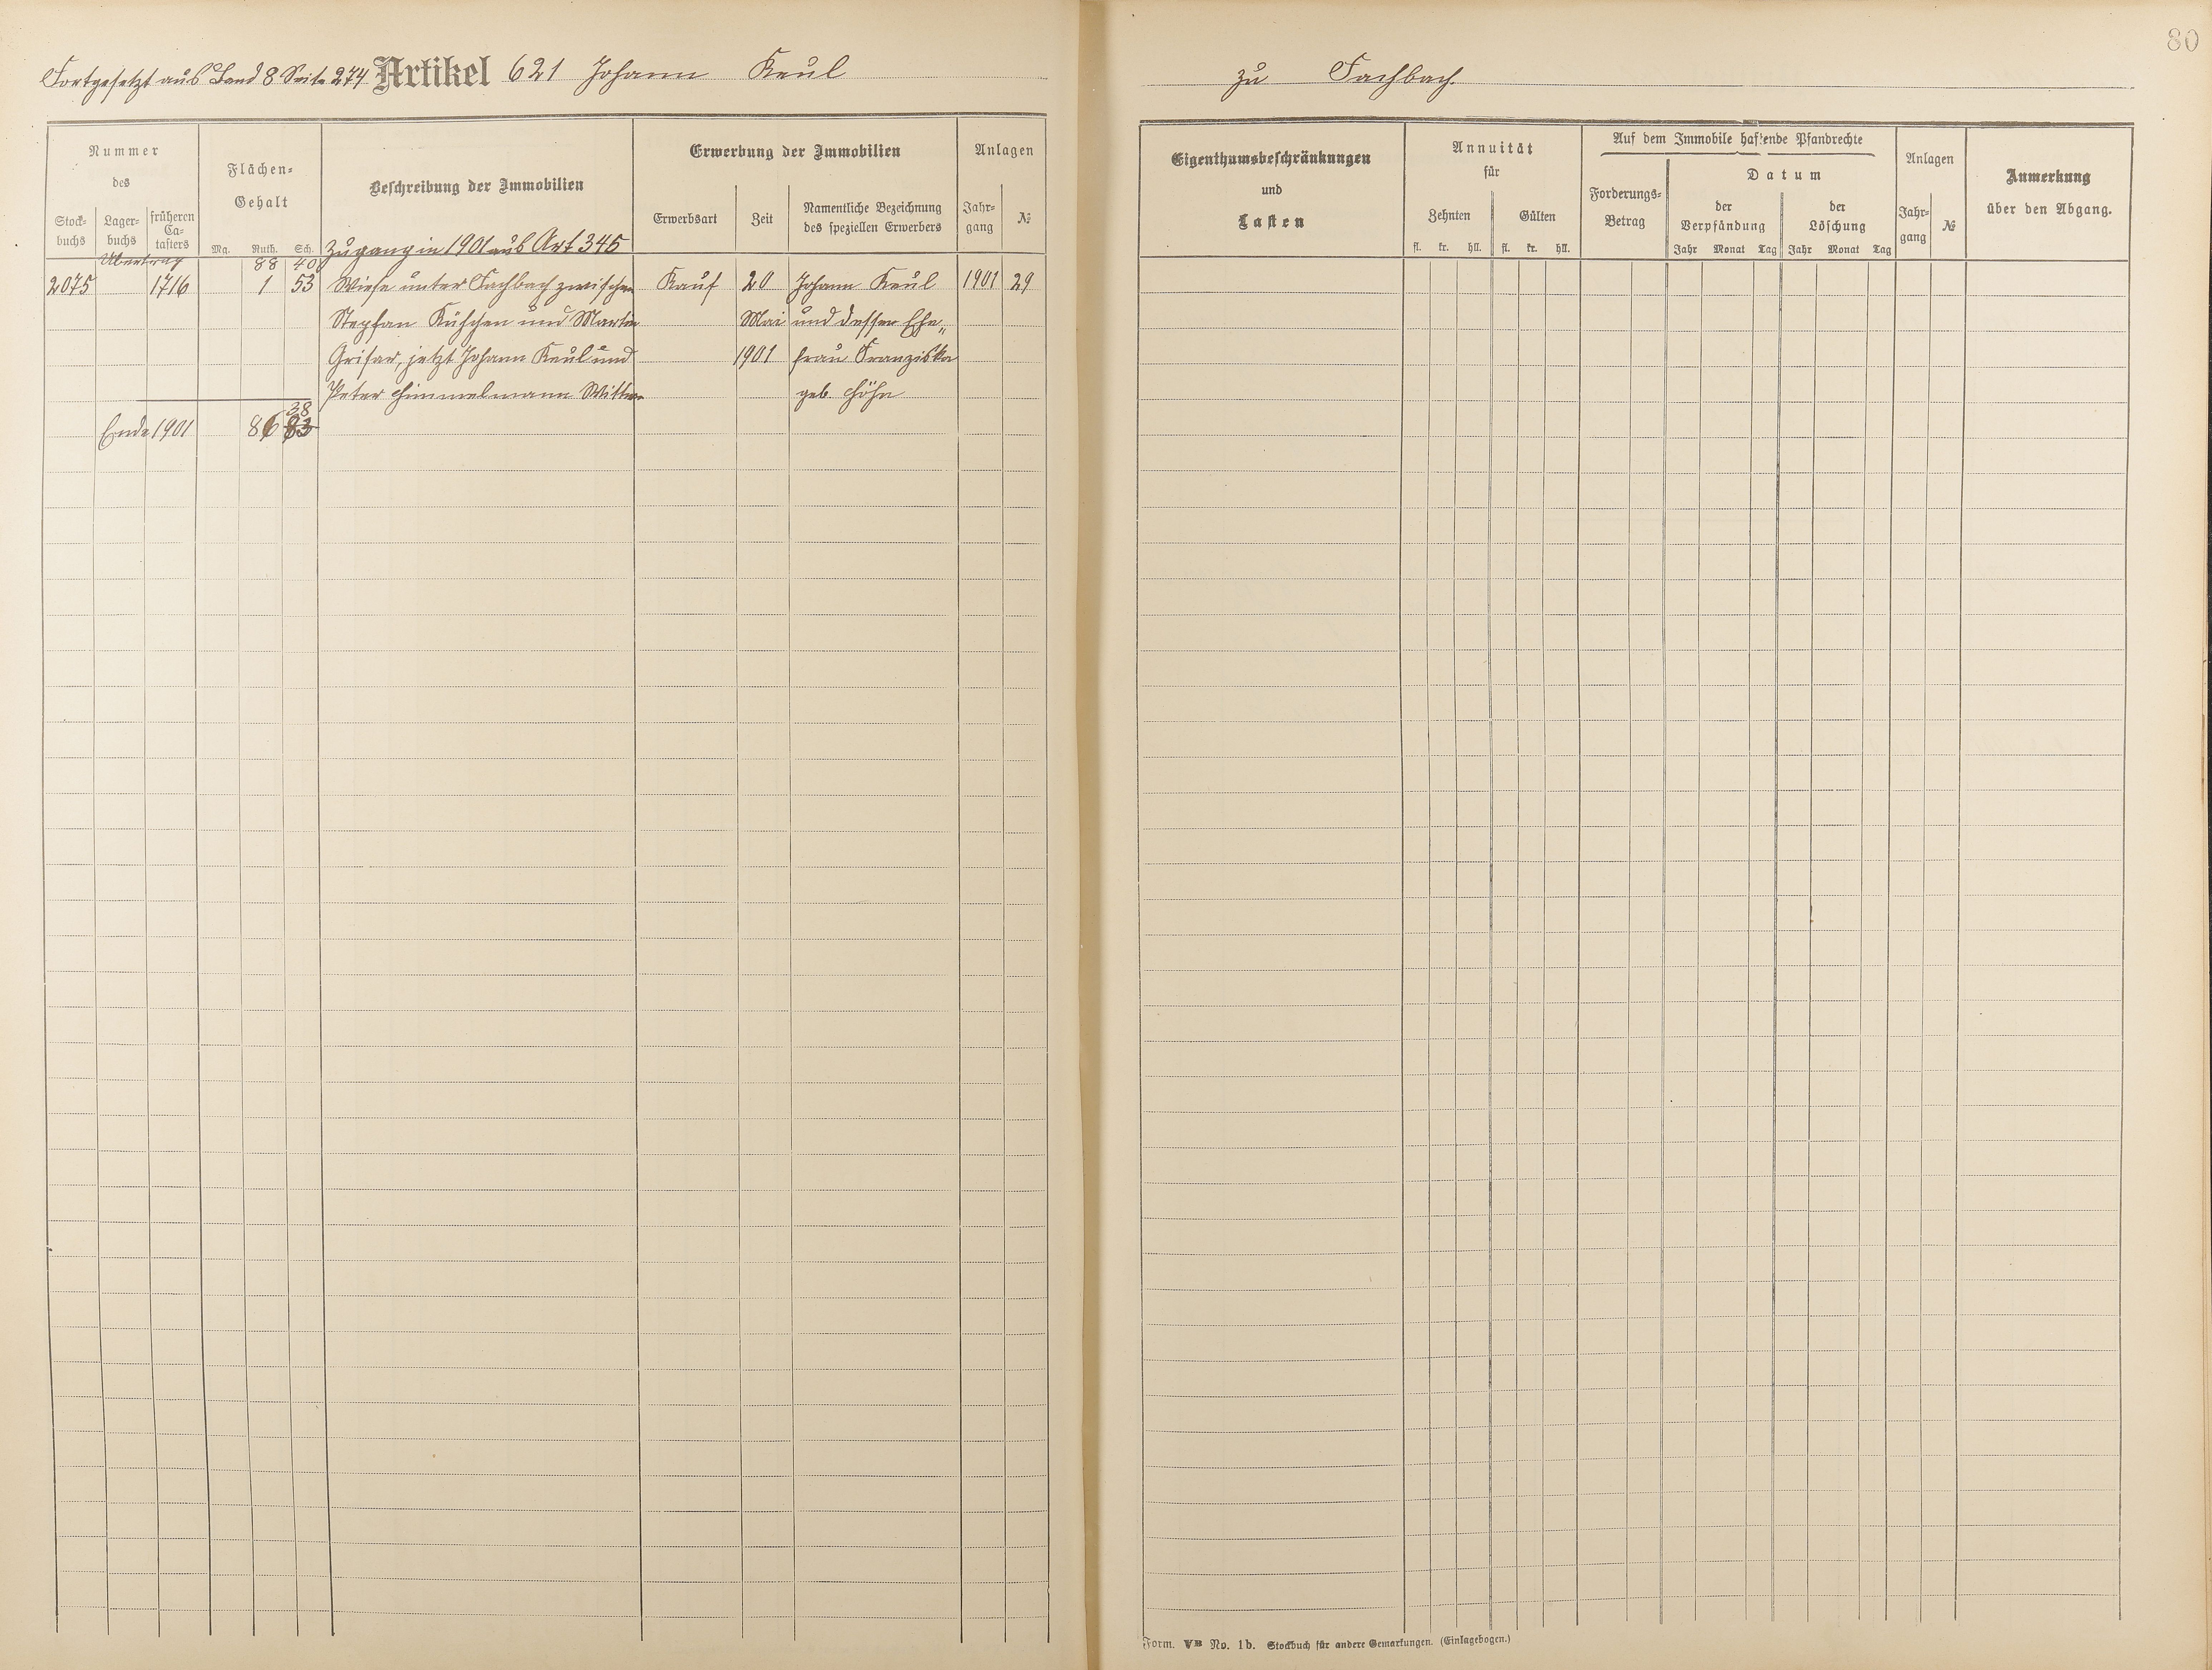 80
Fortgesetzt aus Band 8 Seite 274 Artikel 621 Johann Keul
zu Fachbach
Nummer
des
Stock-
buchs
Lager-
buchs
früheren
Ca-
tasters
Flächen-
Gehalt
Mg. Ruth. Sch.
Beschreibung der Immobilien
Zugang in 1901 aus Art 345
Erwerbung der Immobilien
Erwerbsart
Zeit
Namentliche Bezeichnung
des speziellen Erwerbers
Anlagen
Jahr-
gang
№
Übertrag 88 40
2075 1716 1 53 Wiese unter Fachbach zwischen Kauf 20 Johann Keul 1901 29
Stephan Kühchen und Martin Mai und dessen Ehe„
Grisar, jetzt Johann Keul und 1901 frau Franziska
Peter Himmelmann Wittwe geb. Höhn
38
Ende 1901 86 83
Eigenthumsbeschränkungen
und
Lasten
Annuität
für
Zehnten
Gülten
fl. kr. hll. fl. kr. hll.
Auf dem Immobile haftende Pfandrechte
Forderungs-
Betrag
Datum
der
Verpfändung
der
Löschung
Jahr Monat Tag Jahr Monat Tag
Anlagen
Jahr-
gang
№
Anmerkung
über den Abgang.
Form. VB No. 1b. Stockbuch für andere Gemarkungen. (Einlagebogen.)